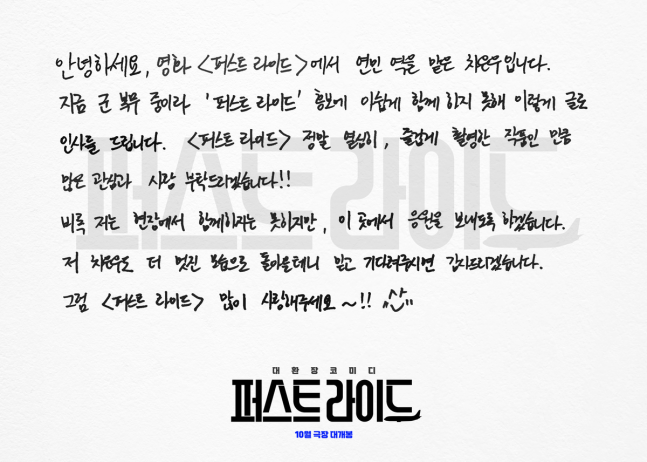 안녕하세요, 영화 <퍼스트 라이드>에서 연민 역을 맡은 차은우입니다.
지금 군 복무 중이라 '퍼스트 라이드' 홍보에 아쉽게 함께 하지 못해 이렇게 글로
인사를 드립니다. <퍼스트 라이드> 정말 열심히, 즐겁게 촬영한 작품인 만큼
많은 관심과 사랑 부탁드리겠습니다!!
비록 저는 현장에서 함께하지는 못하지만, 이 곳에서 응원을 보내도록 하겠습니다.
저 차은우도 더 멋진 모습으로 돌아올테니 믿고 기다려주시면 감사드리겠습니다.
그럼 <퍼스트 라이드> 많이 사랑해주세요~!!
대환장코미디
퍼스트 라이드
10월 극장 대개봉